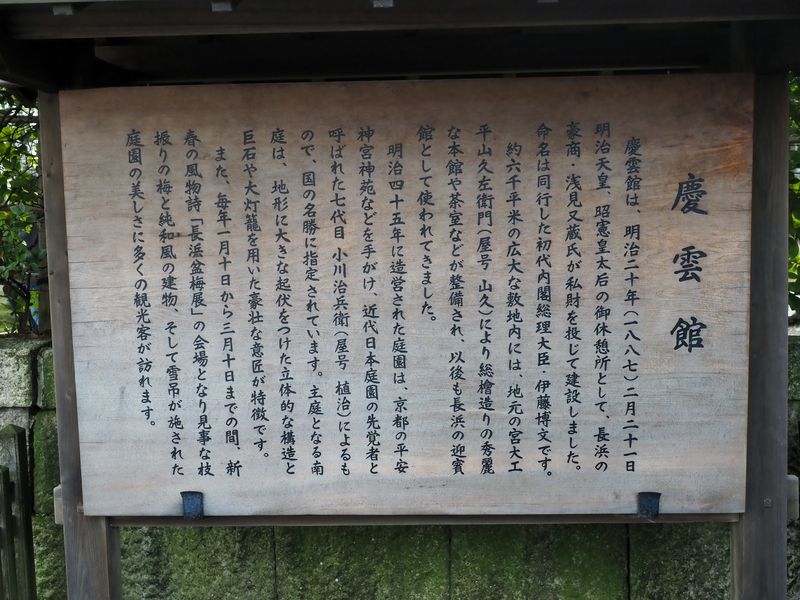 慶雲館
慶雲館は、明治二十年(一八八七)二月二十一日
明治天皇、昭憲皇太后の御休憩所として、長浜の
豪商・浅見又蔵氏が私財を投じて建設しました。
命名は同行した初代内閣総理大臣・伊藤博文です。
約六千平米の広大な敷地内には、地元の宮大工
平山久左衛門(屋号 山久)により総檜造りの秀麗
な本館や茶室などが整備され、以後も長浜の迎賓
館として使われてきました。
明治四十五年に造営された庭園は、京都の平安
神宮神苑などを手がけ、近代日本庭園の先覚者と
呼ばれた七代目 小川治兵衛(屋号 植治)によるも
ので、国の名勝に指定されています。主庭となる南
庭は、地形に大きな起伏をつけた立体的な構造と
巨石や大灯籠を用いた豪壮な意匠が特徴です。
また、毎年一月十日から三月十日までの間、新
春の風物詩「長浜盆梅展」の会場となり見事な枝
振りの梅と純和風の建物、そして雪吊が施された
庭園の美しさに多くの観光客が訪れます。